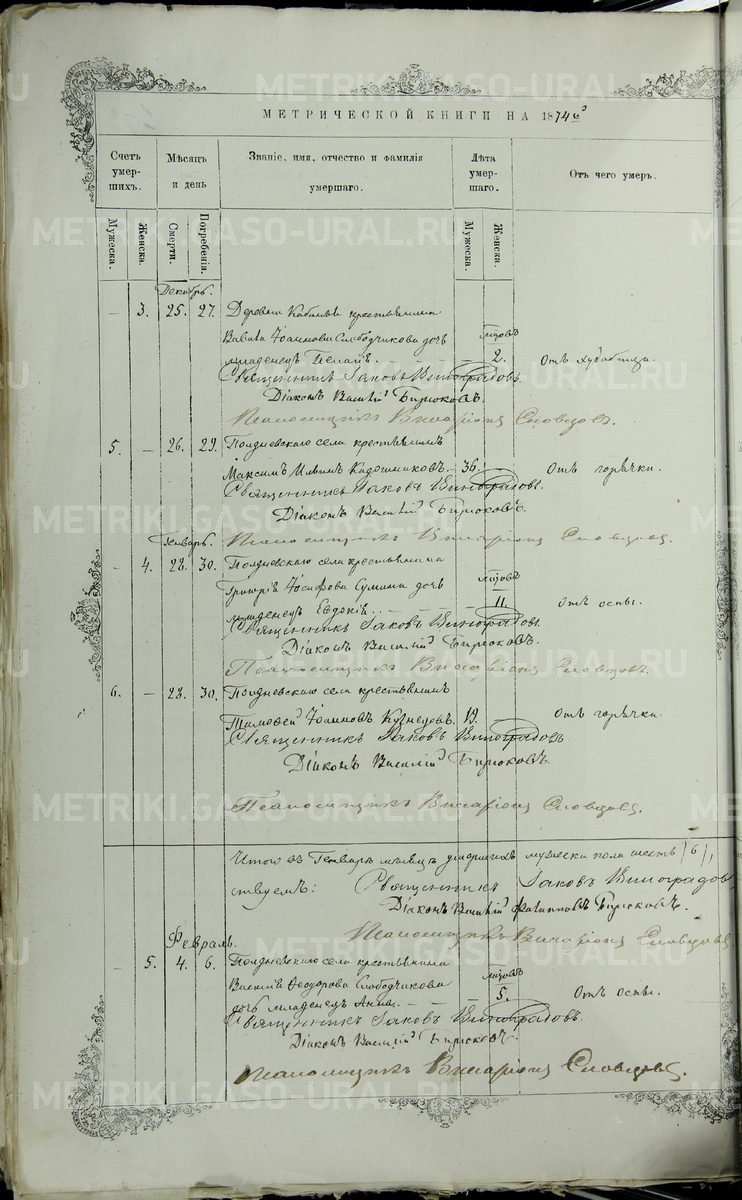 METRIKI.GASO-URAL.RU
МЕТРИЧЕСКОЙ КНИГИ НА 1874 й
Счетъ умер- шихъ.
Мѣсяцъ и день
Званіе, имя, отчество и фамилія умершаго.
Лѣта умер- шаго.
Отъ чего умеръ.
Мужеска.
Женска.
Смерти.
Погребенія.
Мужеска.
Женска.
— 3. 25. 27. Деревни крестьянина
Слободчикова дочь
младенец 2. Отъ
Священникъ Іаковъ Виноградовъ.
Діаконъ Василій Бирюковъ.
Псаломщикъ Виссаріонъ Словцовъ.
5. — 26. 29. Полдневскаго села крестьянинъ
Максимъ 36. — Отъ горячки.
Священникъ Іаковъ Виноградовъ.
Діаконъ Василій Бирюковъ.
Генварь.
Псаломщикъ Виссаріонъ Словцовъ.
— 4. 28. 30. Полдневскаго села крестьянина
Григорія Іосифова дочь
младенецъ Евдокія. 11. Отъ оспы.
Священникъ Іаковъ Виноградовъ.
Діаконъ Василій Бирюковъ.
Псаломщикъ Виссаріонъ Словцовъ.
6. — 28. 30. Полдневскаго села крестьянинъ
Тимофей Іоанновъ Кузнецовъ. 19. Отъ горячки.
Священникъ Іаковъ Виноградовъ.
Діаконъ Василій Бирюковъ.
Псаломщикъ Виссаріонъ Словцовъ.
Итого въ Генварѣ мѣсяцѣ умершихъ мужеска пола шесть /6/,
ствуемъ: Священникъ Іаковъ Виноградовъ
Діаконъ Василій Филипповъ Бирюковъ.
Псаломщикъ Виссаріонъ Словцовъ
Февраль.
— 5. 4. 6. Полдневскаго села крестьянина
Василія Ѳеодорова Слободчикова
дочь младенецъ Анна. 5. Отъ оспы.
Священникъ Іаковъ Виноградовъ.
Діаконъ Василій Бирюковъ.
Псаломщикъ Виссаріонъ Словцовъ.